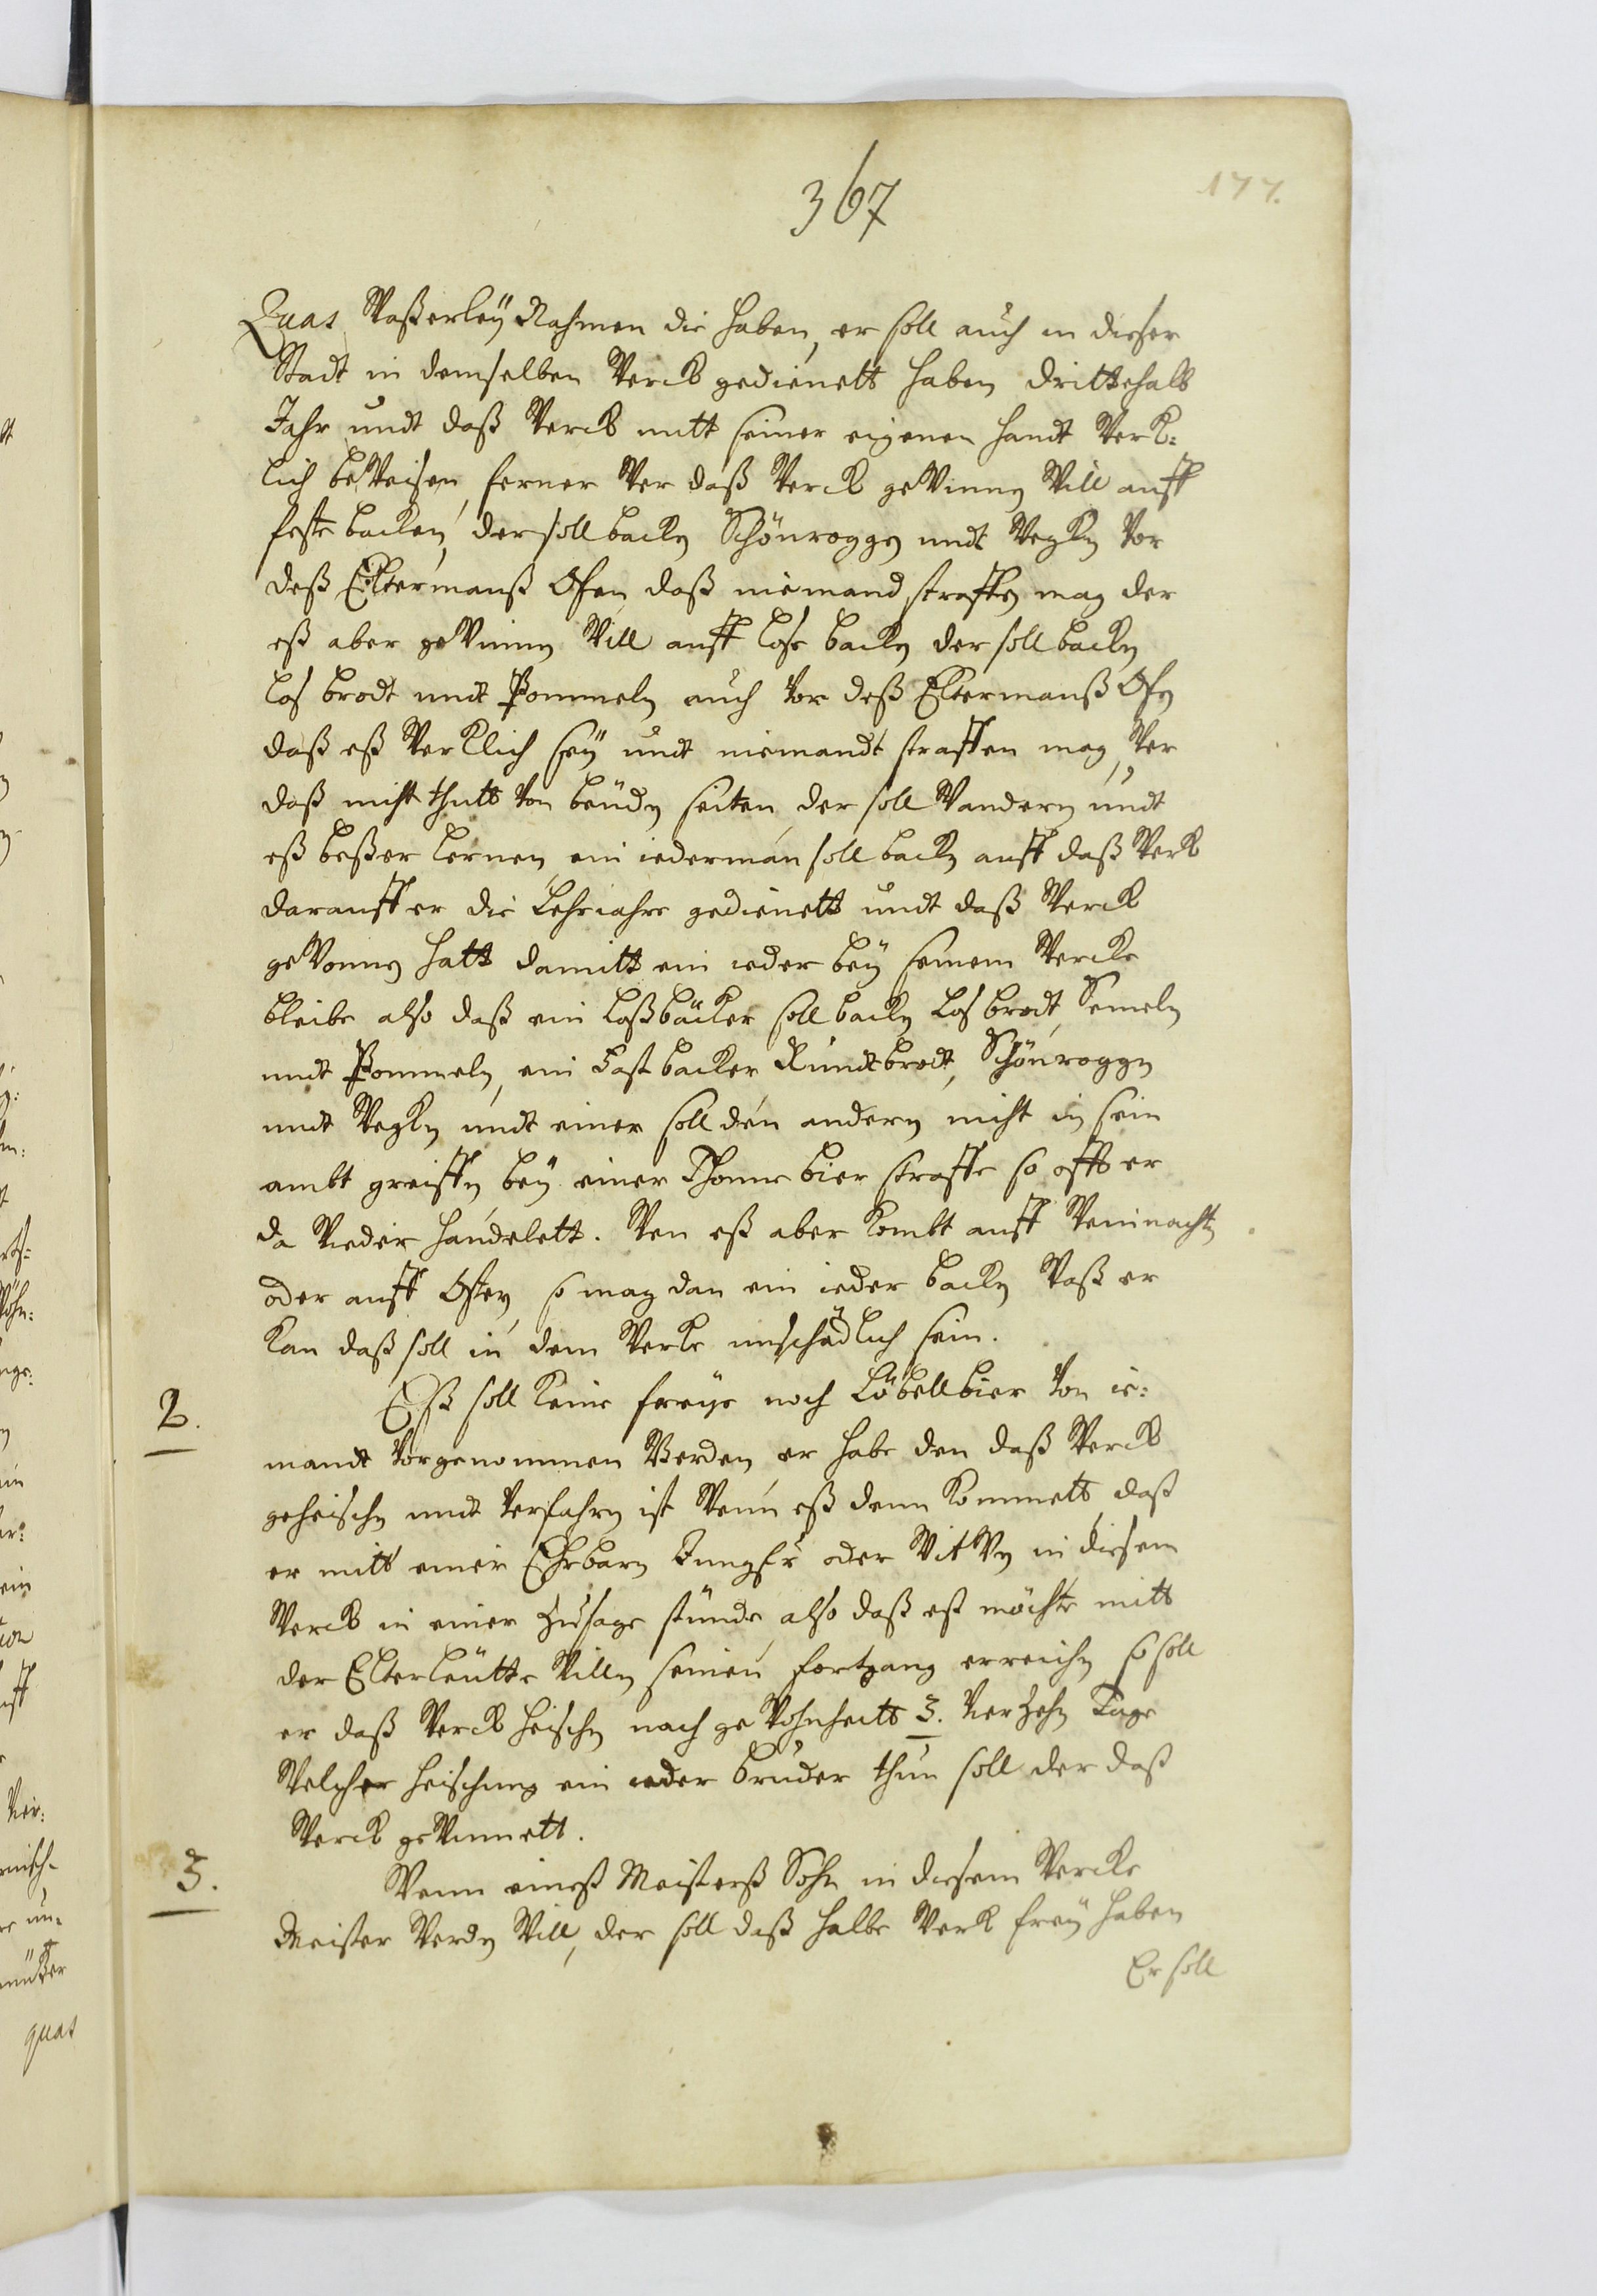 367
177.
Quas Waßerleÿ Nahmen die haben, er soll auch in dieser
Stadt in demselben Werck gedienett haben drittehalb
Jahr undt daß Werck mitt seiner eigenen Handt Werck=
lich beweisen, ferner Wer daß Werck gewinnen Will auff
feste backen, der soll backen Schönroggen undt Wegken vor
deß Eltermanß Ofen, daß niemand straffen mag der
eß aber gewinnen Will auff lose backen der soll backen
los brodt undt Pommeln auch vor deß Eltermanß Ofen
daß eß Wercklich seÿ undt niemandt straffen mag, Wer
daß nicht thutt von beÿden seiten, der soll Wandern undt
eß beßer lernen, ein iederman soll backen auff daß Werck
darauff er die Lehriahre gedienett undt daß Werck
gewonnen hatt damitt ein ieder beÿ seinem Wercke
bleibe also daß ein Loßbäcker soll backen Los brodt, Semeln
undt Pommeln, ein Fastbacker Rundtbrodt, Schönroggen
undt Wegken undt einer soll den andern nicht in sein
ambt greiffen beÿ einer Thonne bier straffe so offt er
da Wieder handelett. Wen eß aber kombt auff Weinachten
oder auff Ostern, so mag dan ein ieder backen Waß er
kan daß soll in dem Wercke unschädlich sein.
2. Eß soll keine freÿe noch Löbellbier von ie=
mandt vorgenommen Werden, er habe den daß Werck
geheischen undt verfahren ist Wenn eß denn kommett daß
er mitt einer Ehrbarn Jungfr oder Witwen in diesem
Werck in einer Zusage stünde, also daß eß möchte mitt
der Elterleutte Willen seinen fortgang erreichen so soll
er daß Werck heischen nach gewohnheitt 3. vierzehn Tage
Welcher heischung ein ieder bruder thun soll der daß
Werck gewinnett.
3. Wenn eineß Meisterß Sohn in diesem Wercke
Meister Werden Will, der soll daß halbe Werck freÿ haben
Er soll
quas